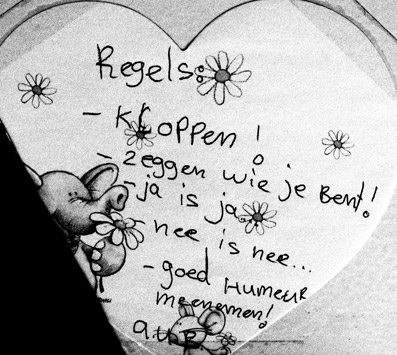 Regels:
- Kloppen!
- zeggen wie je Bent!
- ja is ja...
- nee is nee...
- goed Humeur
meenemen!
a.u.b